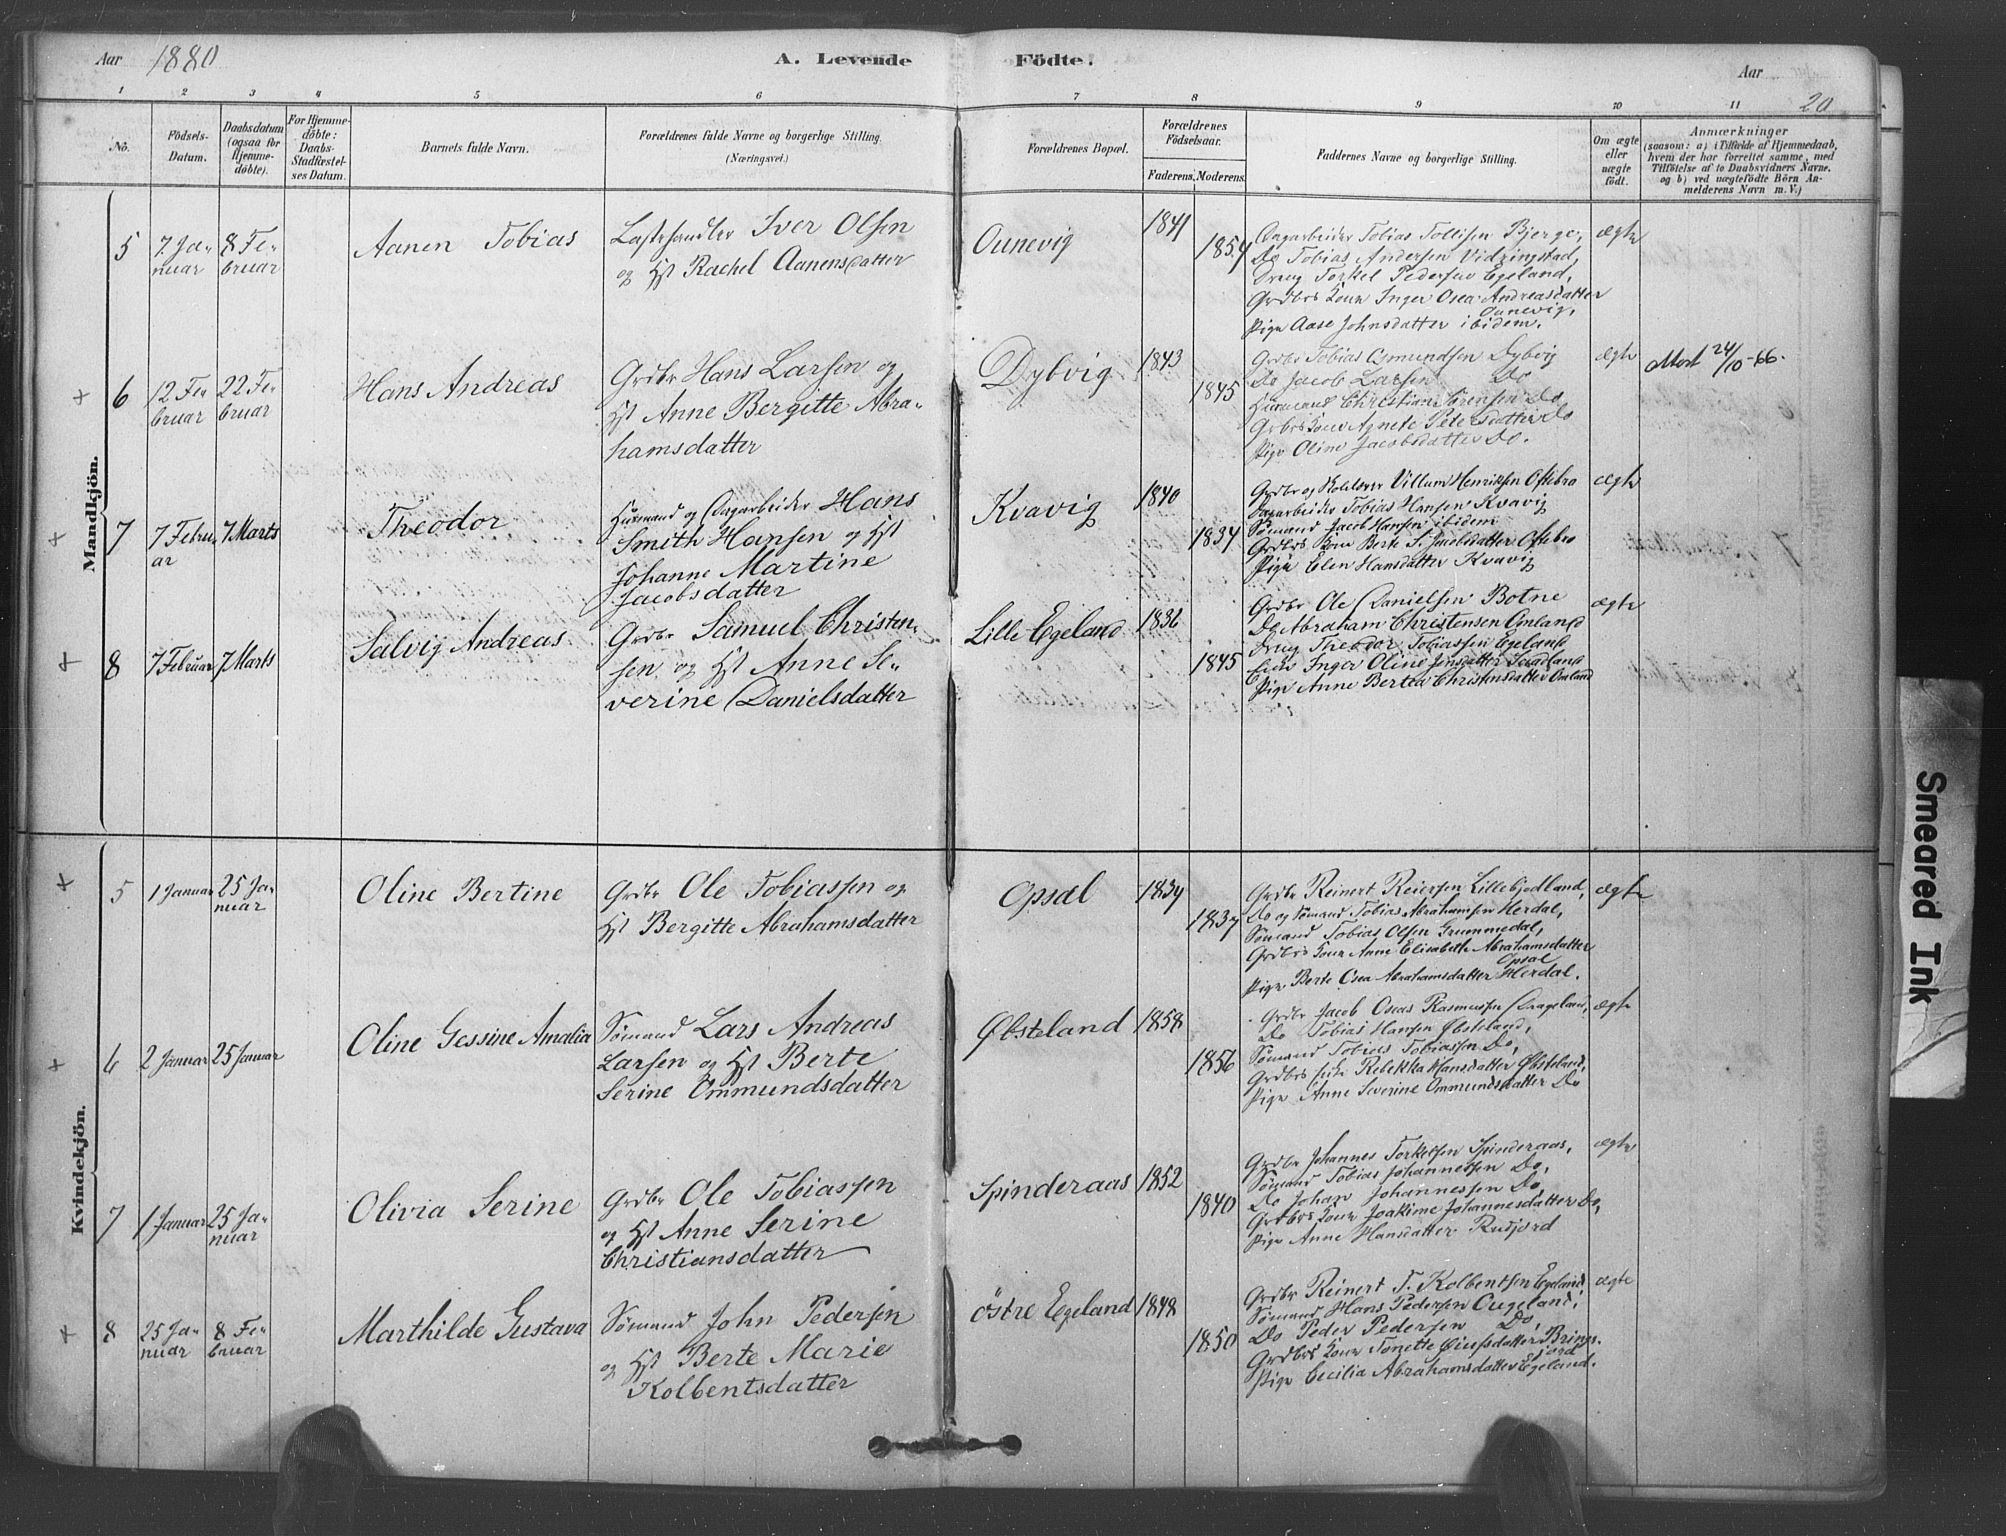 Aar 1880
A. Levende Födte.
Aar
20
1 2 3 4 5 6 7 8 9 10 11
No.
Födsels-Datum.
Daabsdatum (ogsaa for Hjemmedöbte).
For Hjemmedöbte: Daabs-Stadfæstelses Datum.
Barnets fulde Navn.
Forældrenes fulde Navne og borgerlige Stilling.
(Næringsvei.)
Forældrenes Bopæl.
Forældrenes Födselsaar.
Faderens. Moderens.
Faddernes Navne og borgerlige Stilling.
Om ægte eller uægte födt.
Anmærkninger
(saasom: a) i Tilfælde af Hjemmedaab, hvem der har forrettet samme, med Tilföielse af to Daabsvidners Navne, og b) ved uægtefödte Börn Anmelderens Navn m. V.)
Mandkjön.
5
7. Ja-
nuar
8 Fe-
bruar
Aanen Tobias
Lastehandler Iver Olsen
og Hst Rachel Aanensdatter
Ounevig
1841
1854
Dagarbeider Tobias Tollisen Bjerge,
Do Tobias Andersen Vidringstad,
Drug Torkel Pedersen Egeland,
Grdbrs Kone Inger Osea Andreasdatter
Ounevig,
Pige Aase Johnsdatter ibidem.
ægte
+
6
12 Fe-
bruar
22 Fe-
bruar
Hans Andreas
Grdbr Hans Larsen og
Hst Anne Bergitte Abra-
hamsdatter
Dybvig
1843
1845
Grdbr Tobias Osmundsen Dybvig
Do Jacob Larsen Do
Husmand Christian Sørensen Do
Grdbrs Kone Agnete Petersdatter Do
Pige Oline Jacobsdatter Do.
ægte
Attest 24/10-66.
+
7
7 Febru-
ar
7 Marts
Theodor
Husmand og Dagarbeider Hans
Smith Hansen og Hst
Johanne Martine
Jacobsdatter
Kvavig
1840
1834
Grdbr og Skolelærer Villum Henriksen Oftebro
Dagarbeider Tobias Hansen Kvavig
Sømand Jacob Hansen ibidem
Grdbrs Kone Berte S. Jacobsdatter Oftebro
Pige Elen Hansdatter Kvavig
ægte
+
8
7 Februar
7 Marts
Salvig Andreas
Grdbr Samuel Christen-
sen og Hst Anne Se-
verine Danielsdatter
Lille Egeland
1836
1845
Grdbr Ole Danielsen Botne
Do Abraham Christensen Omland
Drug Theodor Tobiassen Egeland
Enke Inger Oline Jensdatter
Pige Anne Bertea Christensdatter Omland
ægte
Kvindekjön.
+
5
1 Januar
25 Ja-
nuar
Oline Bertine
Grdbr Ole Tobiassen og
Hst Bergitte Abrahamsdatter
Opsal
1834
1837
Grdbr Reinert Reiersen Lillebjodland,
Do og Sømand Tobias Abrahamsen Herdal,
Sømand Tobias Olsen Grummedal,
Grdbrs Kone Anne Elisabeth Abrahamsdatter
Opsal
Pige Berte Osea Abrahamsdatter Herdal.
ægte
+
6
2 Januar
25 Januar
Oline Gessine Amalia
Sømand Lars Andreas
Larsen og Hst Berte
Serine Ommundsdatter
Øbsteland
1858
1856
Grdbr Jacob Oseas Rasmussen Drageland,
Do Tobias Hansen Øbsteland,
Sømand Tobias Tobiassen Do,
Grdbrs Enke Rebekka Hansdatter Øbsteland,
Pige Anne Severine Ommundsdatter Do
ægte
7
1 Januar
25 Ja-
nuar
Olivia Serine
Grdbr Ole Tobiassen
og Hst Anne Serine
Christiansdatter
Spinderaas
1852
1840
Grdbr Johannes Torkelsen Spinderaas,
Sømand Tobias Johannessen Do,
Do Johan Johannessen Do,
Grdbrs Kone Joakime Johannesdatter Do,
Pige Anne Hansdatter Rusjord
ægte
+
8
25 Ja-
nuar
8 Fe-
bruar
Marthilde Gustava
Sømand John Pedersen
og Hst Berte Marie
Kolbentsdatter
Østre Egeland
1848
1850
Grdbr Reinert T. Kolbentsen Egeland
Sømand Hans Pedersen
Do Peder Pedersen Do,
Grdbrs Kone Tonette
Pige Cecilia Abrahamsdatter Egeland.
ægte
Smeared Ink